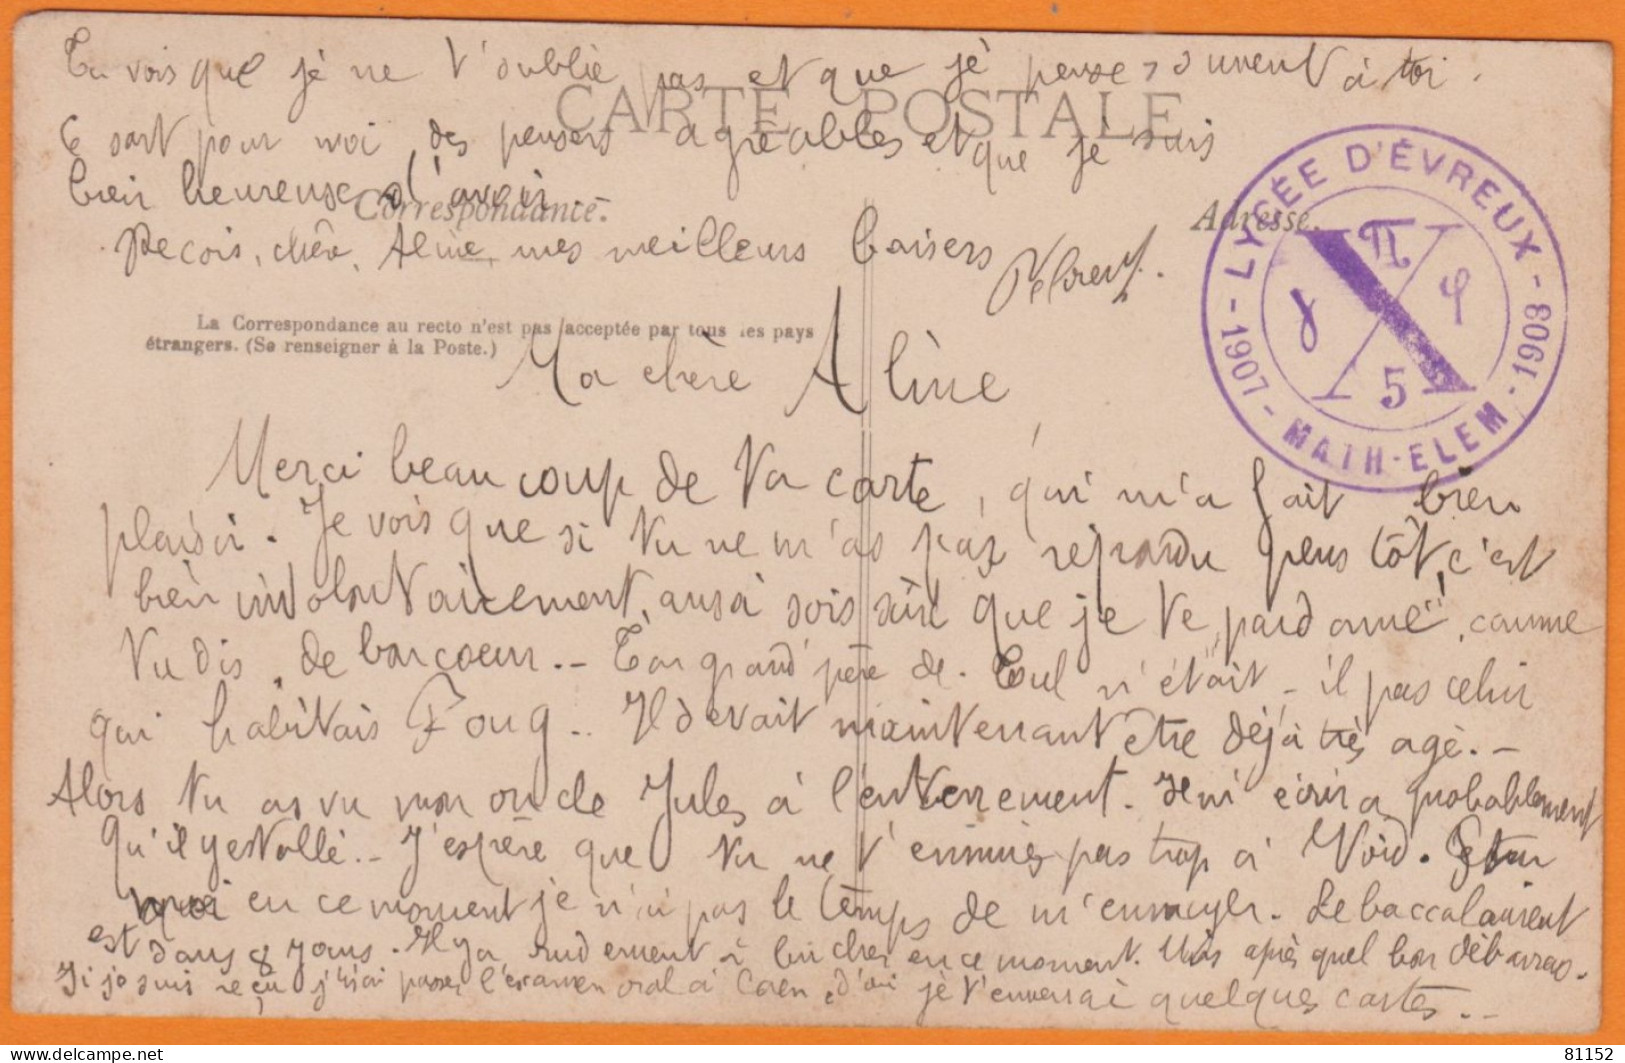 Tu vois que je ne t'oublie pas et que je pense souvent à toi.
CARTE POSTALE
Ce sont pour moi des pensers agréables et que je suis
bien heureuse d'avoir.
Correspondance.
Adresse.
Reçois, chère Aline, mes meilleurs baisers
La Correspondance au recto n'est pas acceptée par tous les pays
étrangers. (Se renseigner à la Poste.)
LYCÉE D'ÉVREUX - 1908 - MATH-ELEM - 1907 -
π
γ φ
5
Ma chère Aline
Merci beaucoup de ta carte, qui m'a fait bien
plaisir. Je vois que si tu ne m'as pas répondu plus tôt, c'est
bien involontairement, aussi sois sûre que je te "pardonne", comme
tu dis, de bon coeur.- Ton grand'père de Toul n'était-il pas celui
qui habitais Foug.. Il devait maintenant être déjà très agé.-
Alors tu as vu mon oncle Jules à l'enterrement. Il m'écrira probablement
qu'il y est allé.- J'espère que tu ne t'ennuies pas trop à Void. Pour
moi en ce moment je n'ai pas le temps de m'ennuyer. Le baccalauréat
est dans 8 jours. Il y a rudement à bûcher en ce moment. Mais après quel bon débarras.
Si je suis reçu j'irai passer l'examen oral à Caen, d'où je t'enverrai quelques cartes..-
81152